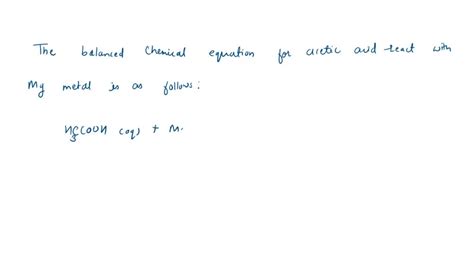 The balanced Chemical equation for acetic acid react with
Mg metal is as follows:
H3CCOOH (aq) + M